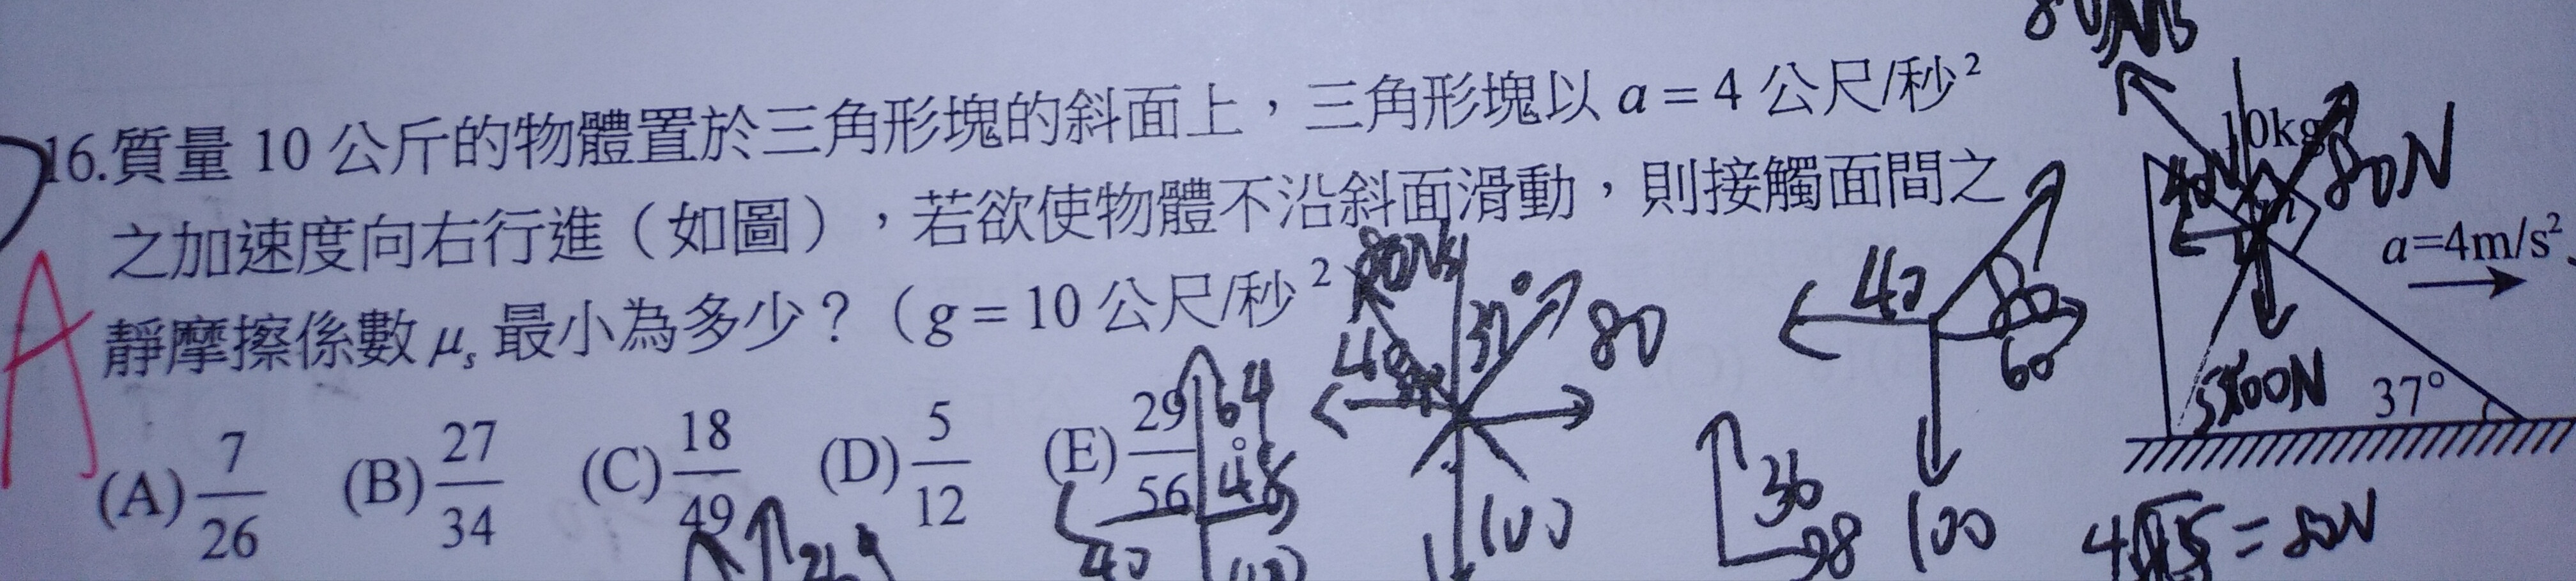 16.質量 10 公斤的物體置於三角形塊的斜面上，三角形塊以 a = 4 公尺/秒²
之加速度向右行進（如圖），若欲使物體不沿斜面滑動，則接觸面間之
靜摩擦係數 μs 最小為多少？（g = 10 公尺/秒²）
(A) 7/26 (B) 27/34 (C) 18/49 (D) 5/12 (E) 29/56
A
10kg
80N
a=4m/s²
37°
40
80
60
100
64
48
40
37°
80
100
36